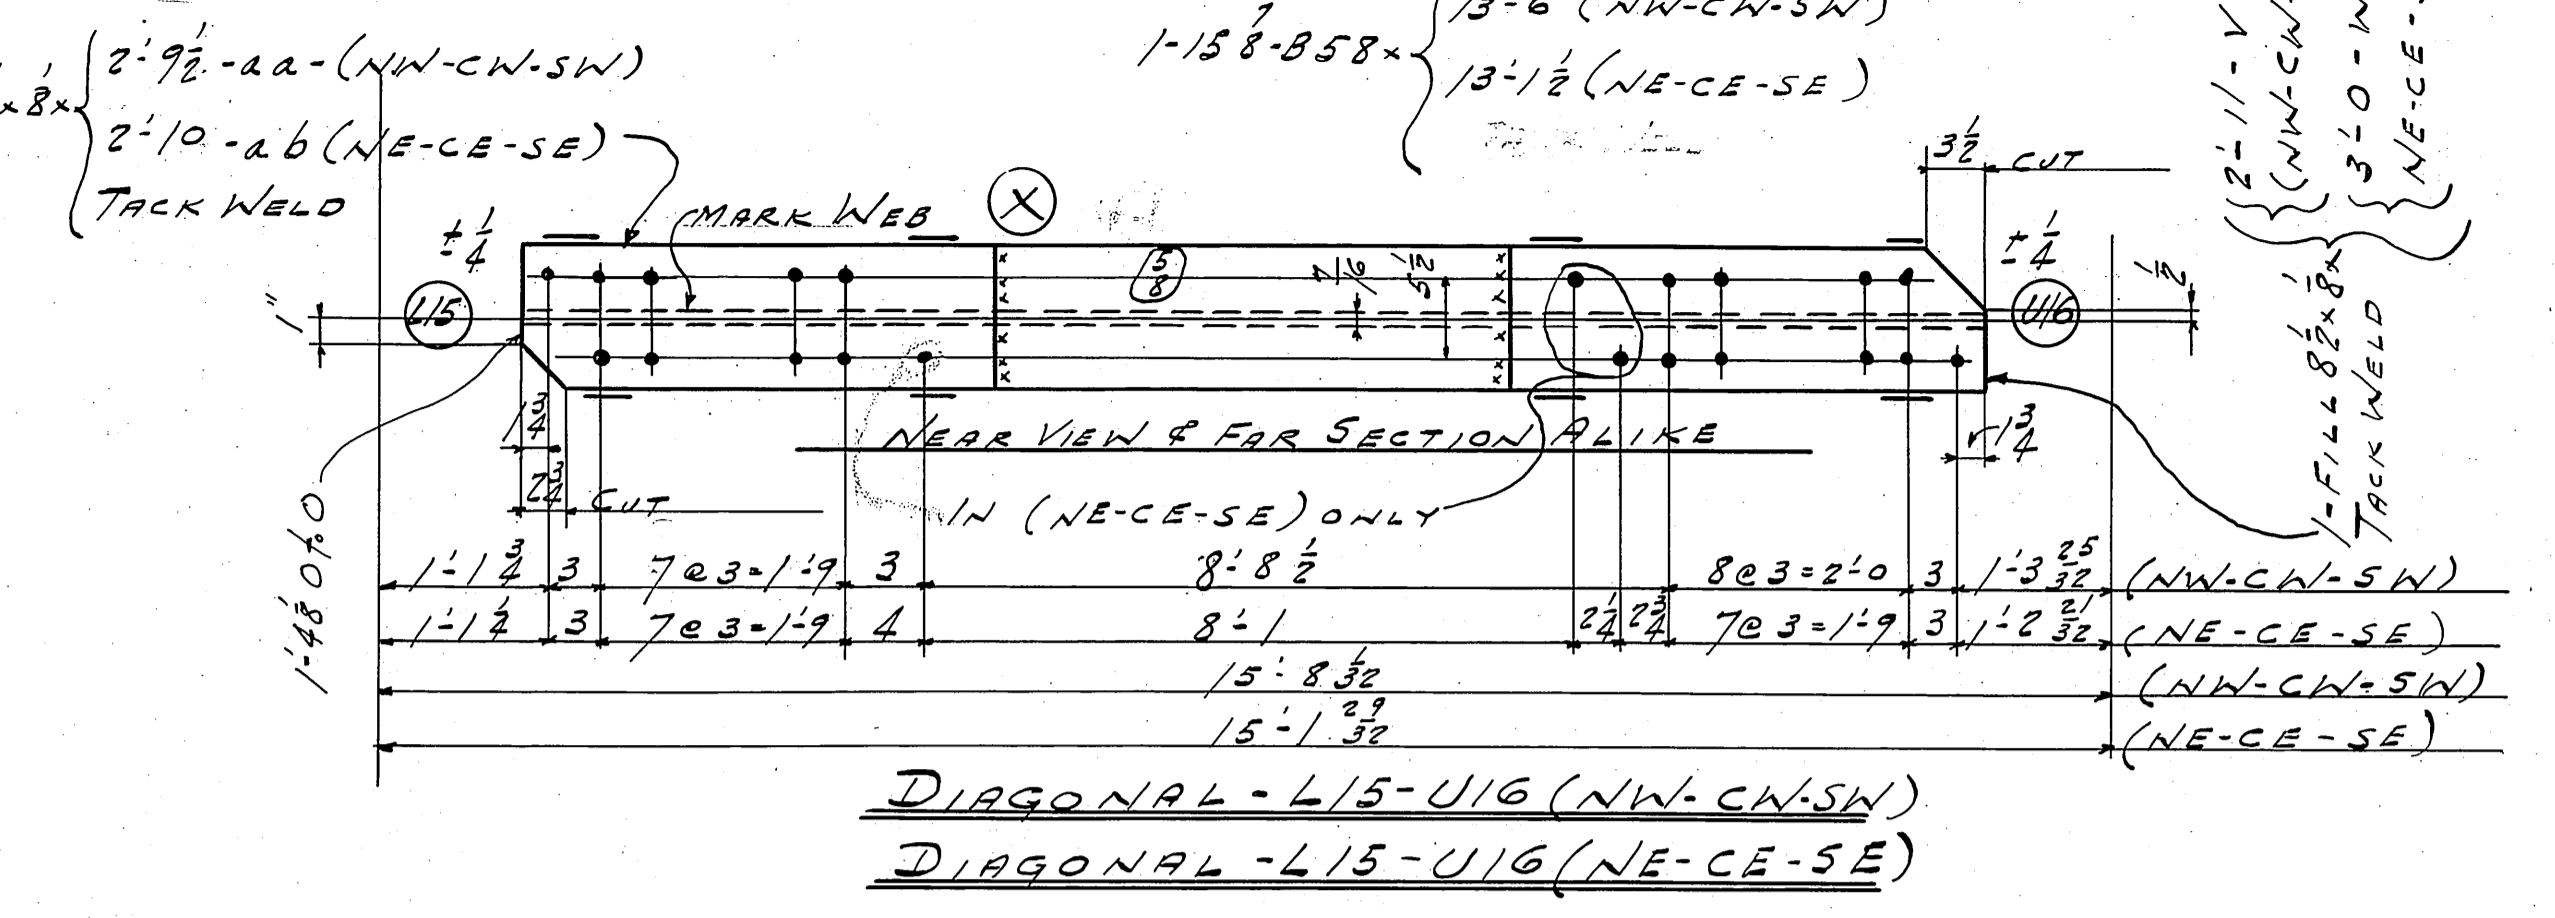 x 1/8 x
2'-9 1/2 -aa-(NW-CW-SW)
2'-10 -ab (NE-CE-SE)
TACK WELD
1-15 8-B58x
13-6 (NW-CW-SW)
13'-1 1/2 (NE-CE-SE)
2'-11-V
(NW-CW
3'-0-W
NE-CE-
1-FILL 8 1/2 x 1/8 x
TACK WELD
3 1/2 CUT
MARK WEB
X
± 1/4
5/8
7/16
5 1/2
± 1/4
1/2
1"
L15
U16
1 3/4
NEAR VIEW & FAR SECTION ALIKE
1 3/4
2 3/4 CUT
IN (NE-CE-SE) ONLY
1'-4 1/8 O to O
1'-1 3/4 3 7@3=1'-9 3 8'-8 1/2 8@3=2'-0 3 1'-3 25/32 (NW-CW-SW)
1'-1 1/4 3 7@3=1'-9 4 8'-1 2 1/4 2 3/4 7@3=1'-9 3 1'-2 21/32 (NE-CE-SE)
15'-8 1/32 (NW-CW-SW)
15'-1 29/32 (NE-CE-SE)
DIAGONAL-L15-U16 (NW-CW-SW)
DIAGONAL-L15-U16 (NE-CE-SE)